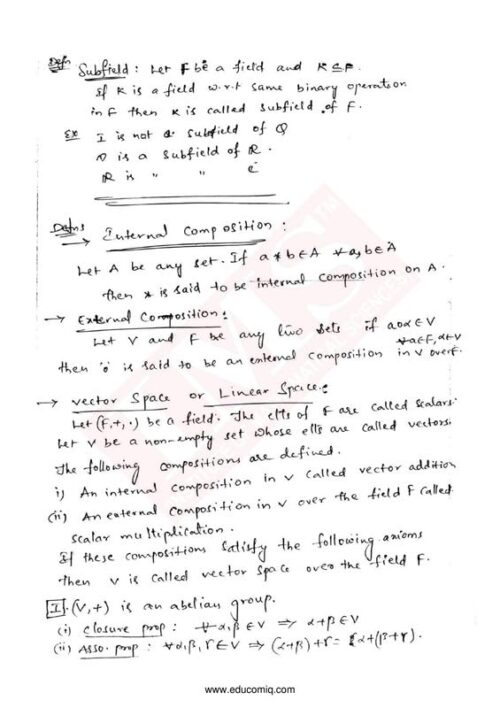 Defn Subfield : Let F be a field and K ⊆ F.
If K is a field w.r.t same binary operation
in F then K is called subfield of F.
Ex I is not a subfield of Q
Q is a subfield of R.
R is " " C
Defns
→ Internal Composition :
Let A be any set. If a * b ∈ A ∀ a, b ∈ A
then * is said to be internal composition on A.
→ External Composition :
Let V and F be any two sets if a o α ∈ V
∀ a ∈ F, α ∈ V
then 'o' is said to be an external composition in V over F.
→ Vector Space or Linear Space :
Let (F, +, ·) be a field. The elts of F are called scalars.
Let V be a non-empty set whose elts are called vectors.
The following compositions are defined.
i) An internal composition in V called vector addition
(ii) An external composition in V over the field F called
scalar multiplication.
If these compositions satisfy the following axioms
then V is called vector space over the field F.
I. (V, +) is an abelian group.
(i) closure prop : ∀ α, β ∈ V ⇒ α + β ∈ V
(ii) Asso. prop : ∀ α, β, γ ∈ V ⇒ (α + β) + γ = α + (β + γ).
www.educomiq.com